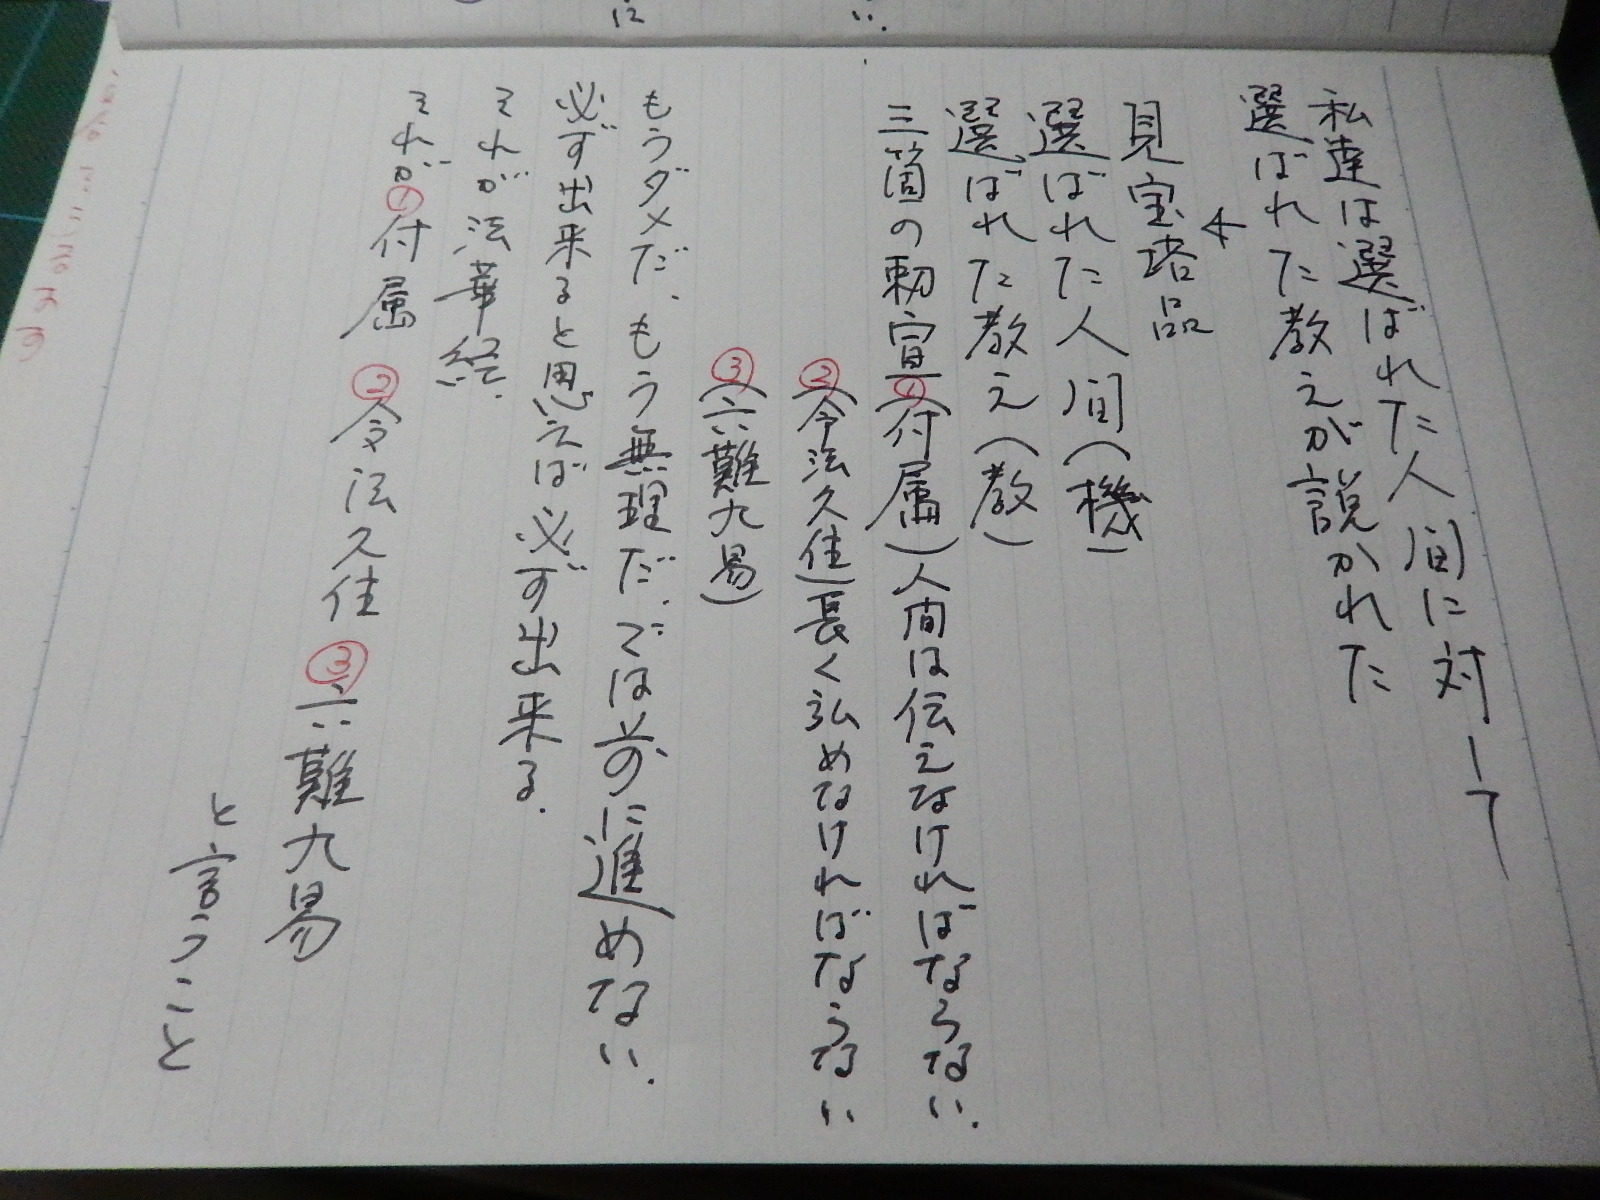 私達は選ばれた人間に対して
選ばれた教えが説かれた
見宝塔品
選ばれた人間(機)
選ばれた教え(教)
三箇の勅宣①(付属)人間は伝えなければならない.
②(令法久住)長く弘めなければならない
③(六難九易)
もうダメだ、もう無理だ、では前に進めない.
必ず出来ると思えば必ず出来る.
それが法華経.
それが①付属 ②令法久住 ③六難九易
と言うこと